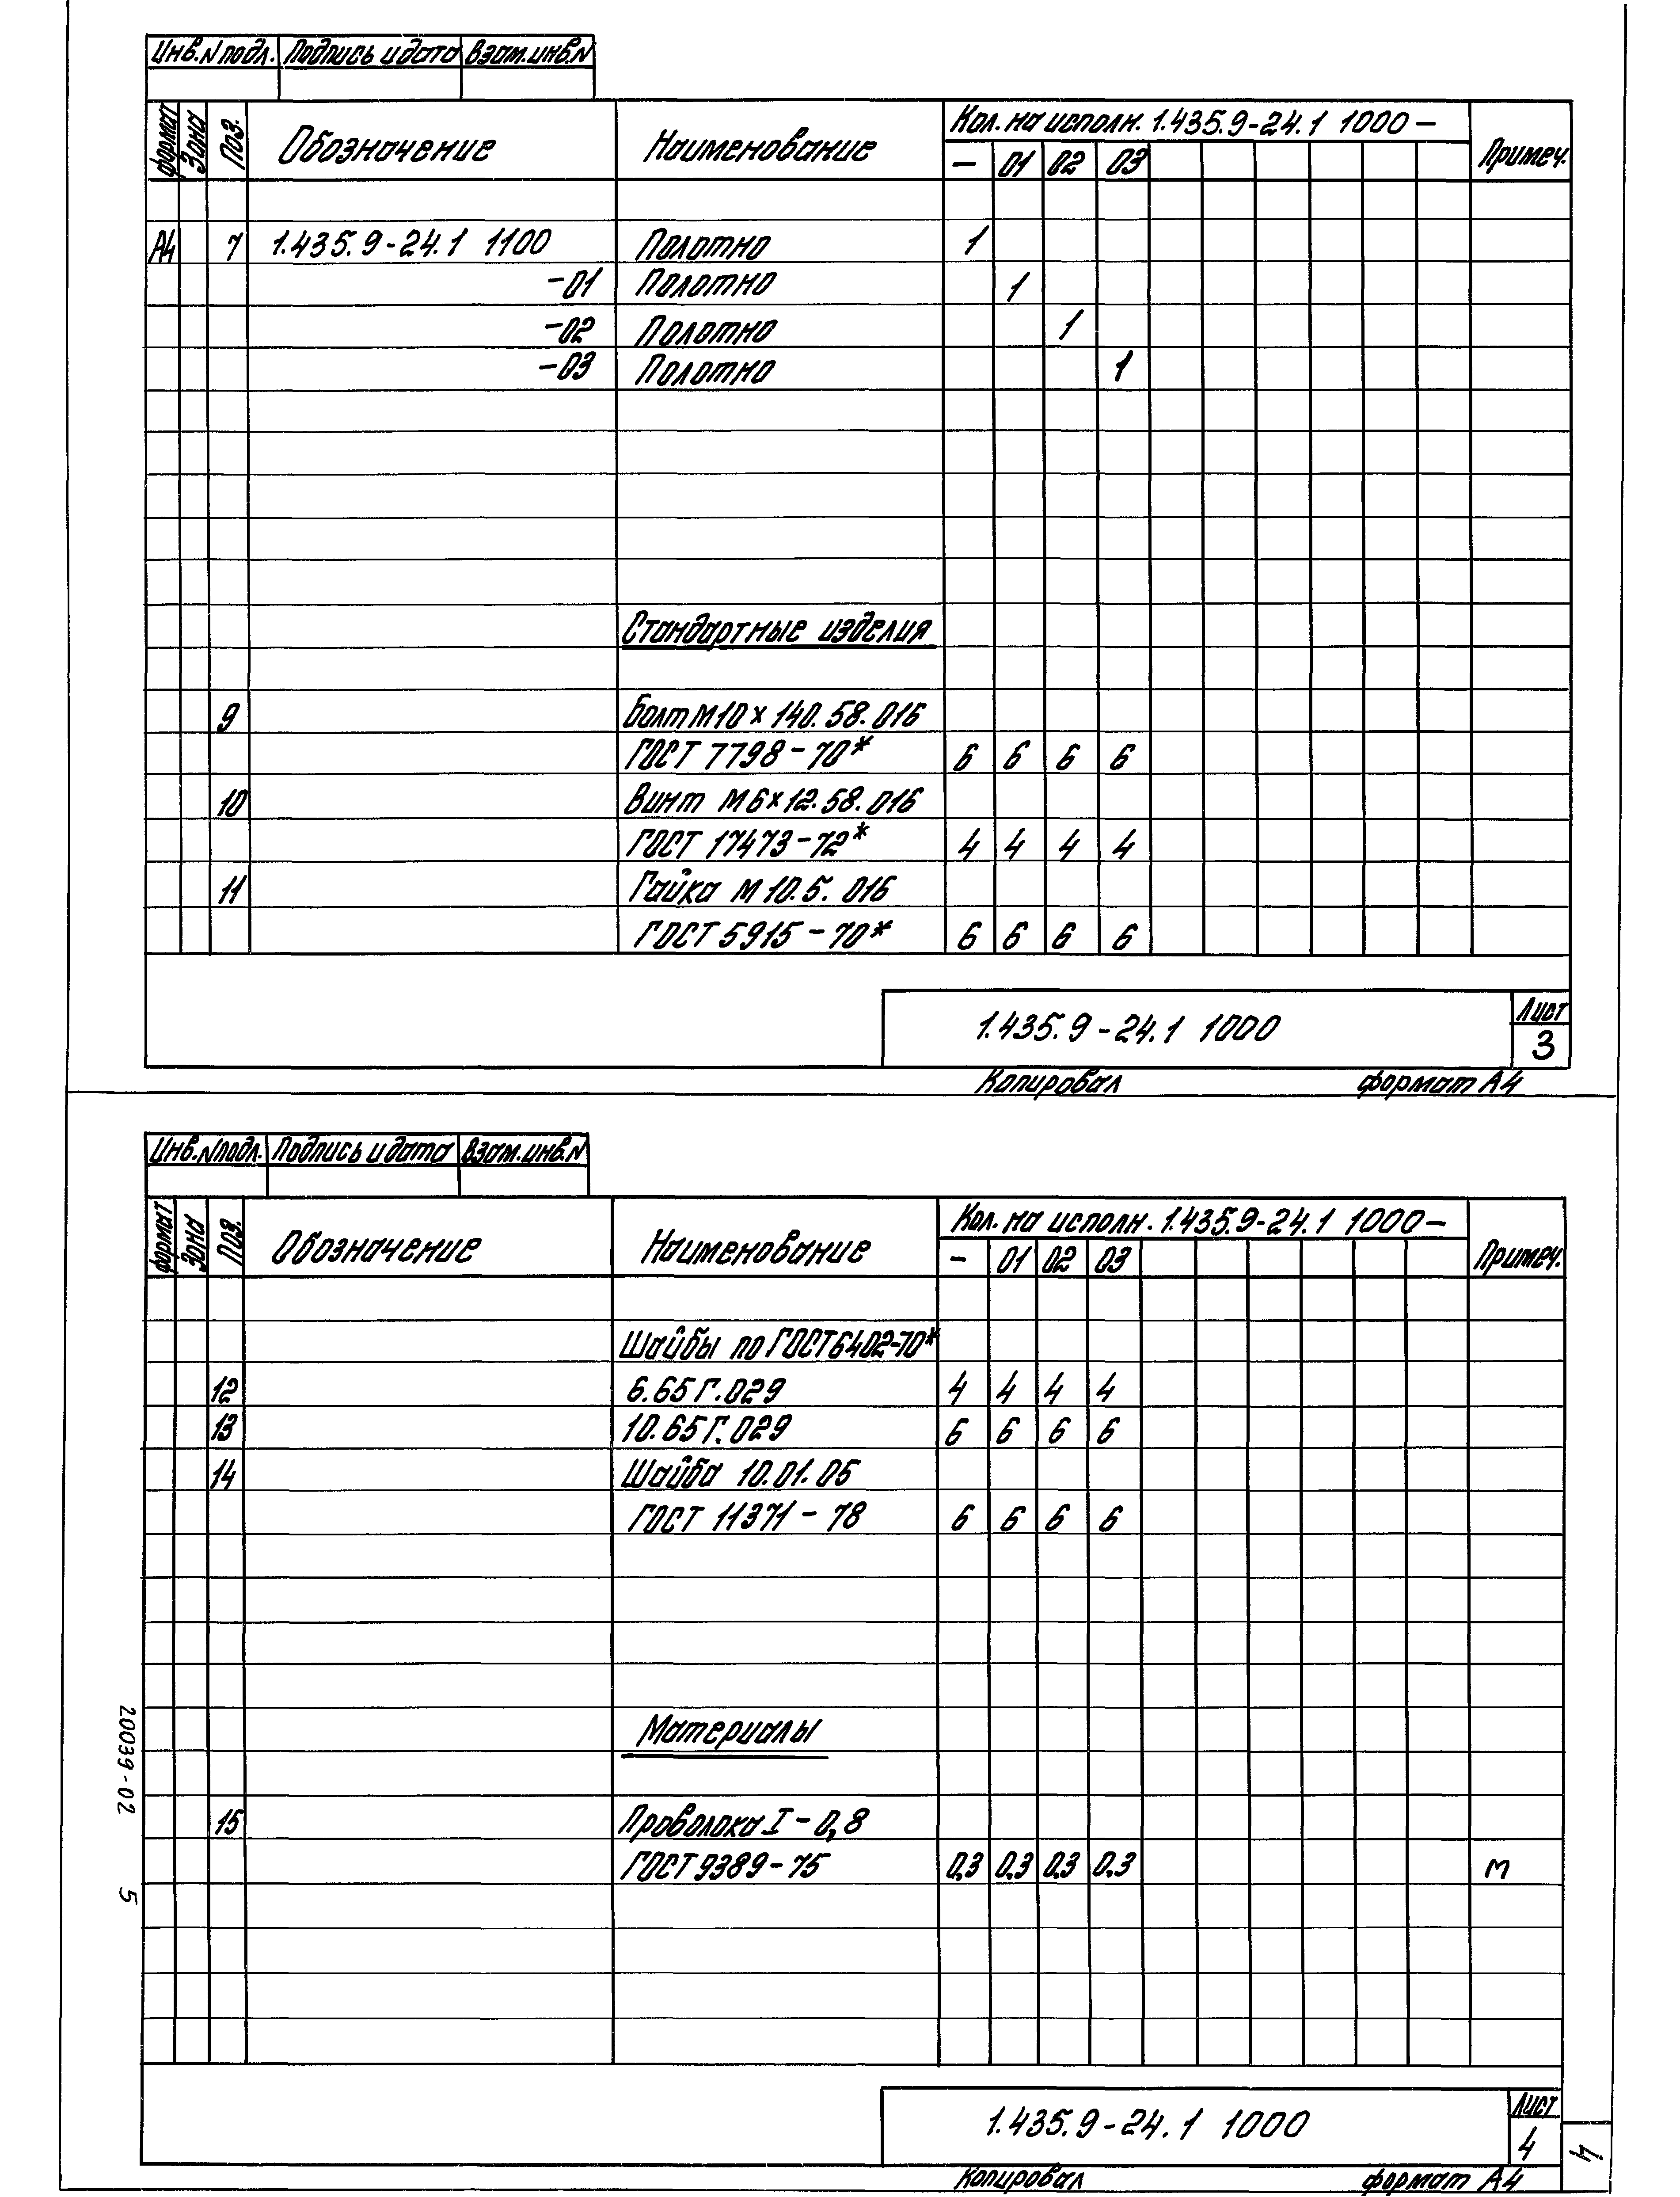 Инв.N подл. Подпись и дата Взам.инв.N
формат Зона Поз. Обозначение Наименование Кол. на исполн. 1.435.9-24.1 1000 — Примеч.
— 01 02 03
А4 7 1.435.9-24.1 1100 Полотно 1
-01 Полотно 1
-02 Полотно 1
-03 Полотно 1
Стандартные изделия
9 Болт М10×140.58.016
ГОСТ 7798-70* 6 6 6 6
10 Винт М6×12.58.016
ГОСТ 17473-72* 4 4 4 4
11 Гайка М10.5.016
ГОСТ 5915-70* 6 6 6 6
1.435.9-24.1 1000 Лист
3
Копировал формат А4
Инв.N подл. Подпись и дата Взам.инв.N
формат Зона Поз. Обозначение Наименование Кол. на исполн. 1.435.9-24.1 1000 — Примеч.
— 01 02 03
Шайбы по ГОСТ 6402-70*
12 6.65Г.029 4 4 4 4
13 10.65Г.029 6 6 6 6
14 Шайба 10.01.05
ГОСТ 11371-78 6 6 6 6
Материалы
15 Проволока I-0,8
ГОСТ 9389-75 0,3 0,3 0,3 0,3 м
20039-02 5
1.435.9-24.1 1000 Лист
4
Копировал формат А4
4